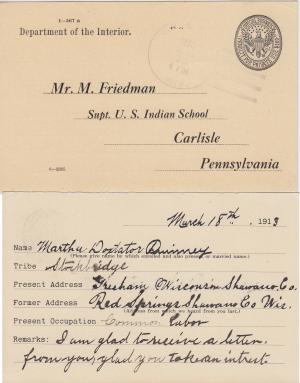 1-567 a
Department of the Interior.
Mr. M. Friedman
Supt. U. S. Indian School
Carlisle
Pennsylvania
March 18th, 1913
Name Martha Doxtator Quinney
(Please give name by which enrolled and also present or married name.)
Tribe Stockbridge
Present Address Gresham Wisconsin Shawano. Co.
Former Address Red Springs Shawano Co Wis.
(Address from which we heard from you last.)
Present Occupation Common Labor
Remarks: I am glad to receive a letter
from you, glad you take an intrest